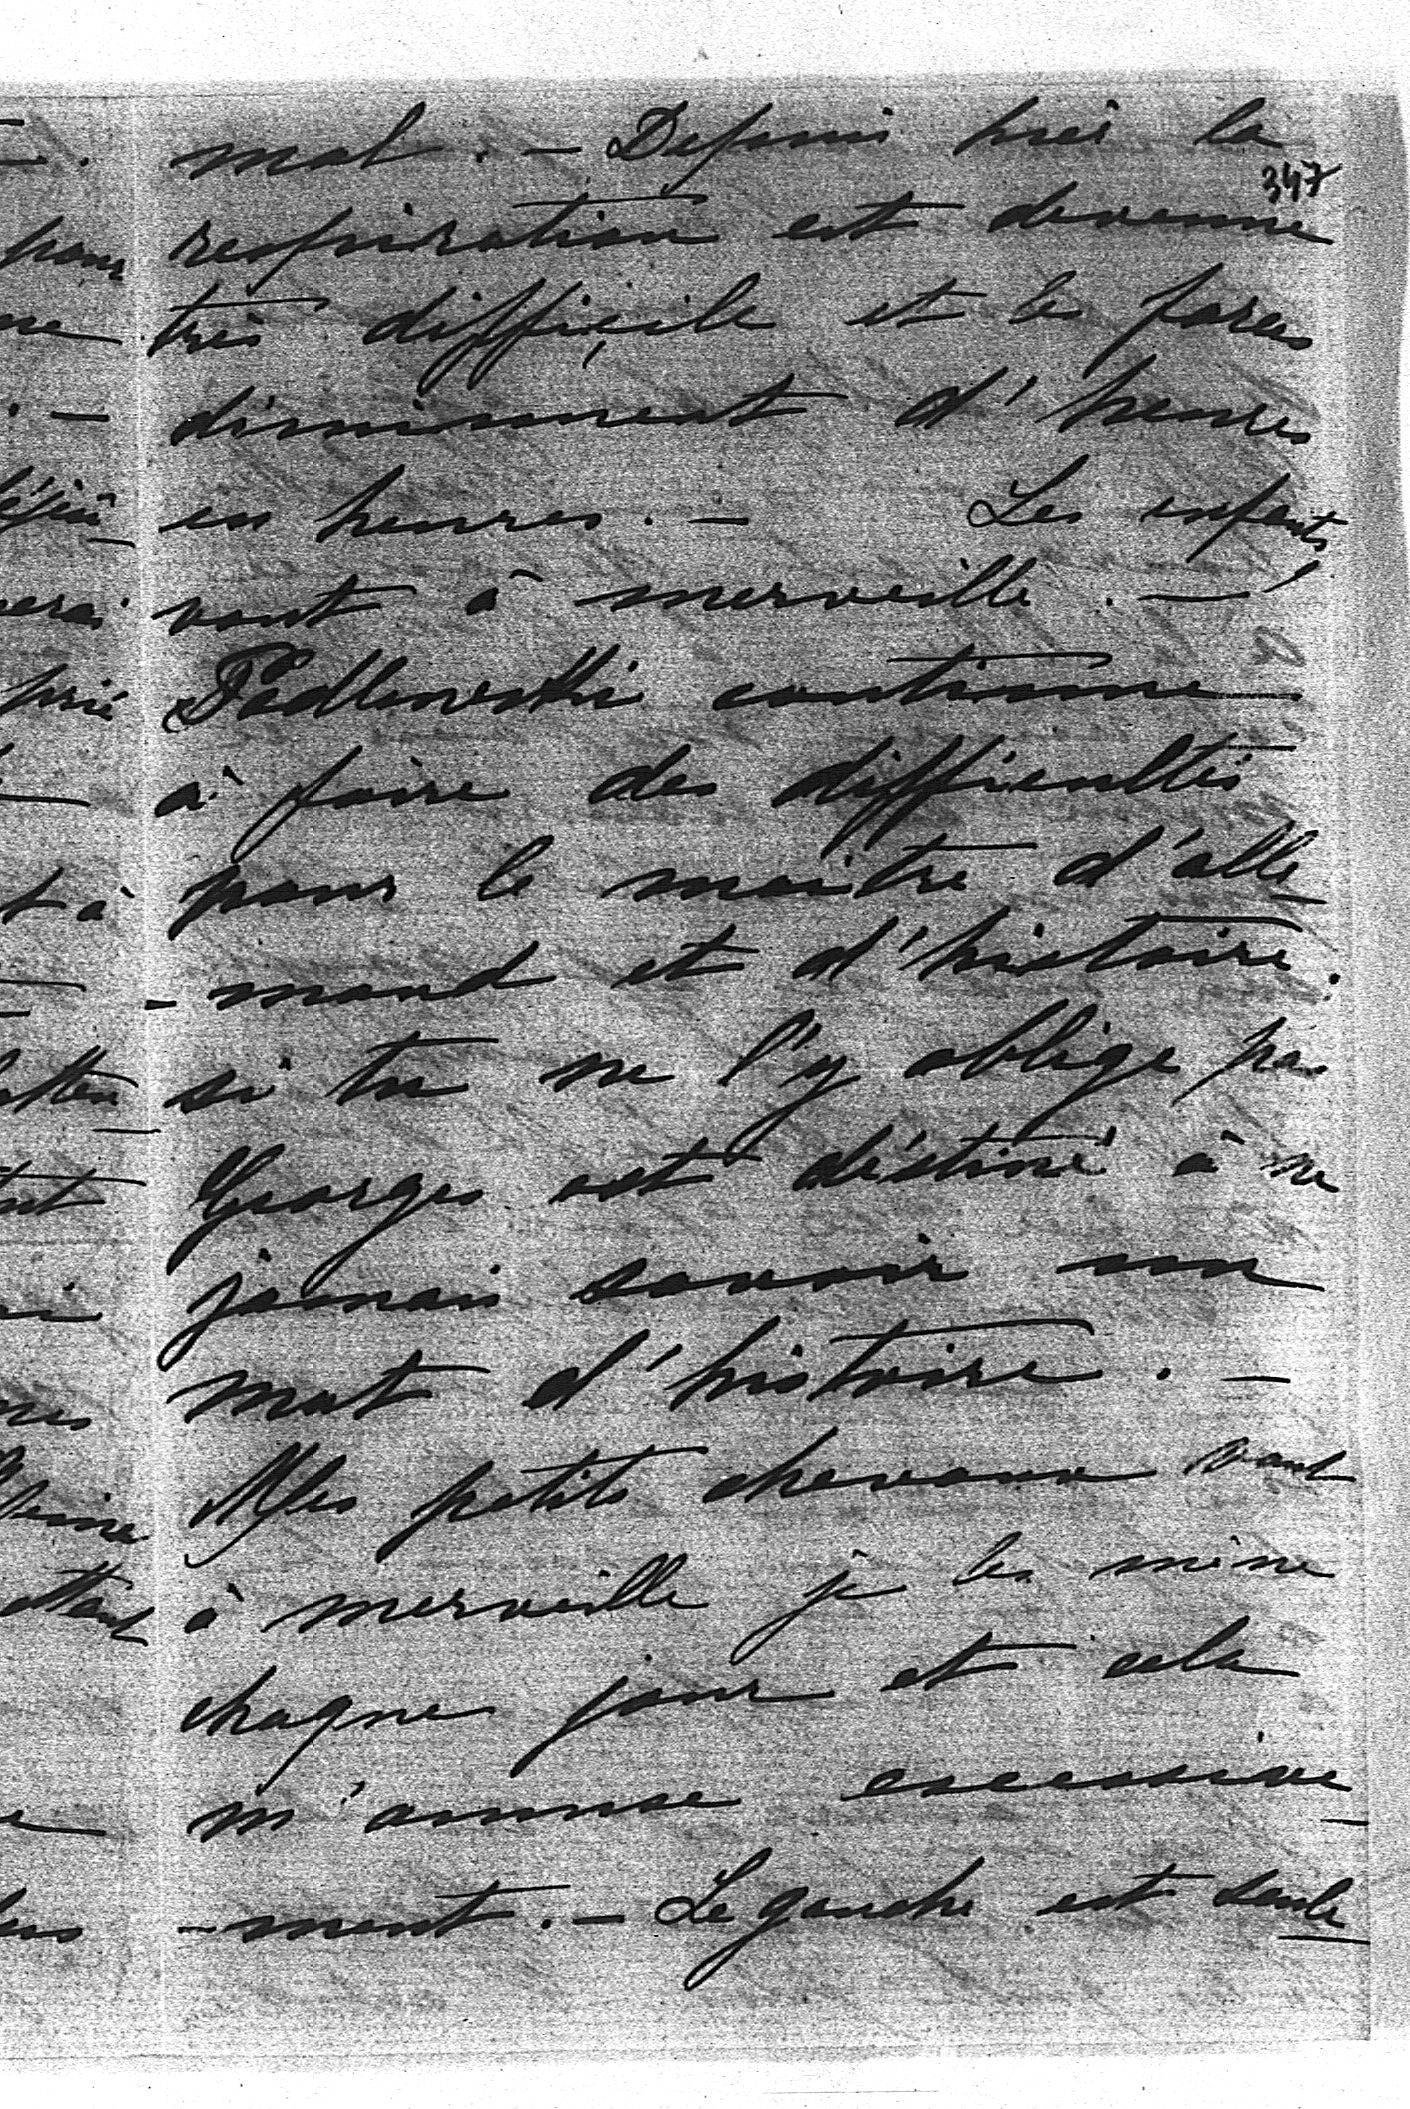 mal. — Depuis hier la
347
respiration est devenue
très difficile et les forces
diminuent d'heures
en heures. — Les enfants
vont à merveille. —
continue
à faire des difficultés
pour le maître d'alle-
-mand et d'histoire.
si tu ne l'y oblige pas
Georges est déstiné à ne
jamais savoir un
mot d'histoire. —
Mes petits chevaux vont
à merveille je les mène
chaque jour et cela
m'amuse excessive-
-ment. — Le gauche est seule-
pour
déjà
prié
t à